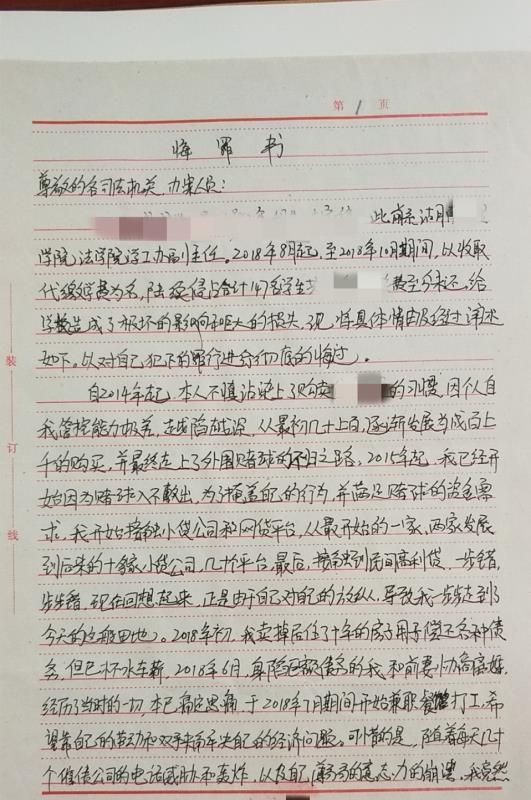 第 1 页
悔罪书
尊敬的各司法机关、办案人员：
此前系沽月
学院法学院学工办副主任。2018年8月起，至2018年10月期间，以收取
代缴学费为名，陆续侵占合计47名学生 费至今未还，给
学校造成了极坏的影响和巨大的损失，现将具体情由及经过详述
如下。以对自己犯下的罪行进行彻底的悔过。
自2014年起，本人不慎沾染上了购买 的习惯，因个人自
我管控能力极差，越陷越深，从最初几十上百，逐渐发展为成百上
千的购买，并最终走上了外围赌球的不归之路。2015年起，我已经开
始因为赌球入不敷出，为了掩盖自己的行为，并满足赌球的资金需
求，我开始接触小贷公司和网贷平台，从最开始的一家、两家发展
到后来的十余家小贷公司，几十个平台，最后，接触到民间高利贷，一步错，
步步错，现在回想起来，正是由于自己对自己的放纵，导致我一步步走到了
今天的这般田地。2018年初，我卖掉居住了十年的房子用于偿还各种债
务，但已杯水车薪，2018年6月，身陷巨额债务的我和前妻协商离婚，
经历了当时的一切，本已痛定思痛，于2018年7月期间开始兼职 打工，希
望靠自己的劳动和双手来解决自己的经济问题。可惜的是，随着每天几十
个催债公司的电话威胁和轰炸，以及自 的意志力的崩溃，我竟然
装
订
线